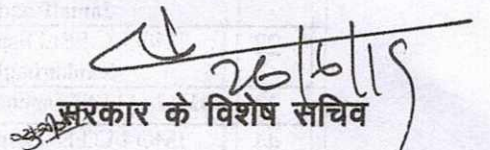 26/6/15
सरकार के विशेष सचिव